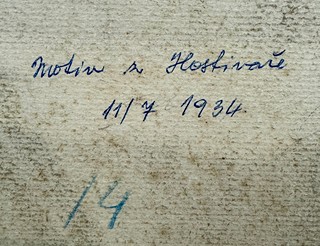 Motiv z Hostivaře
11/7 1934.
14